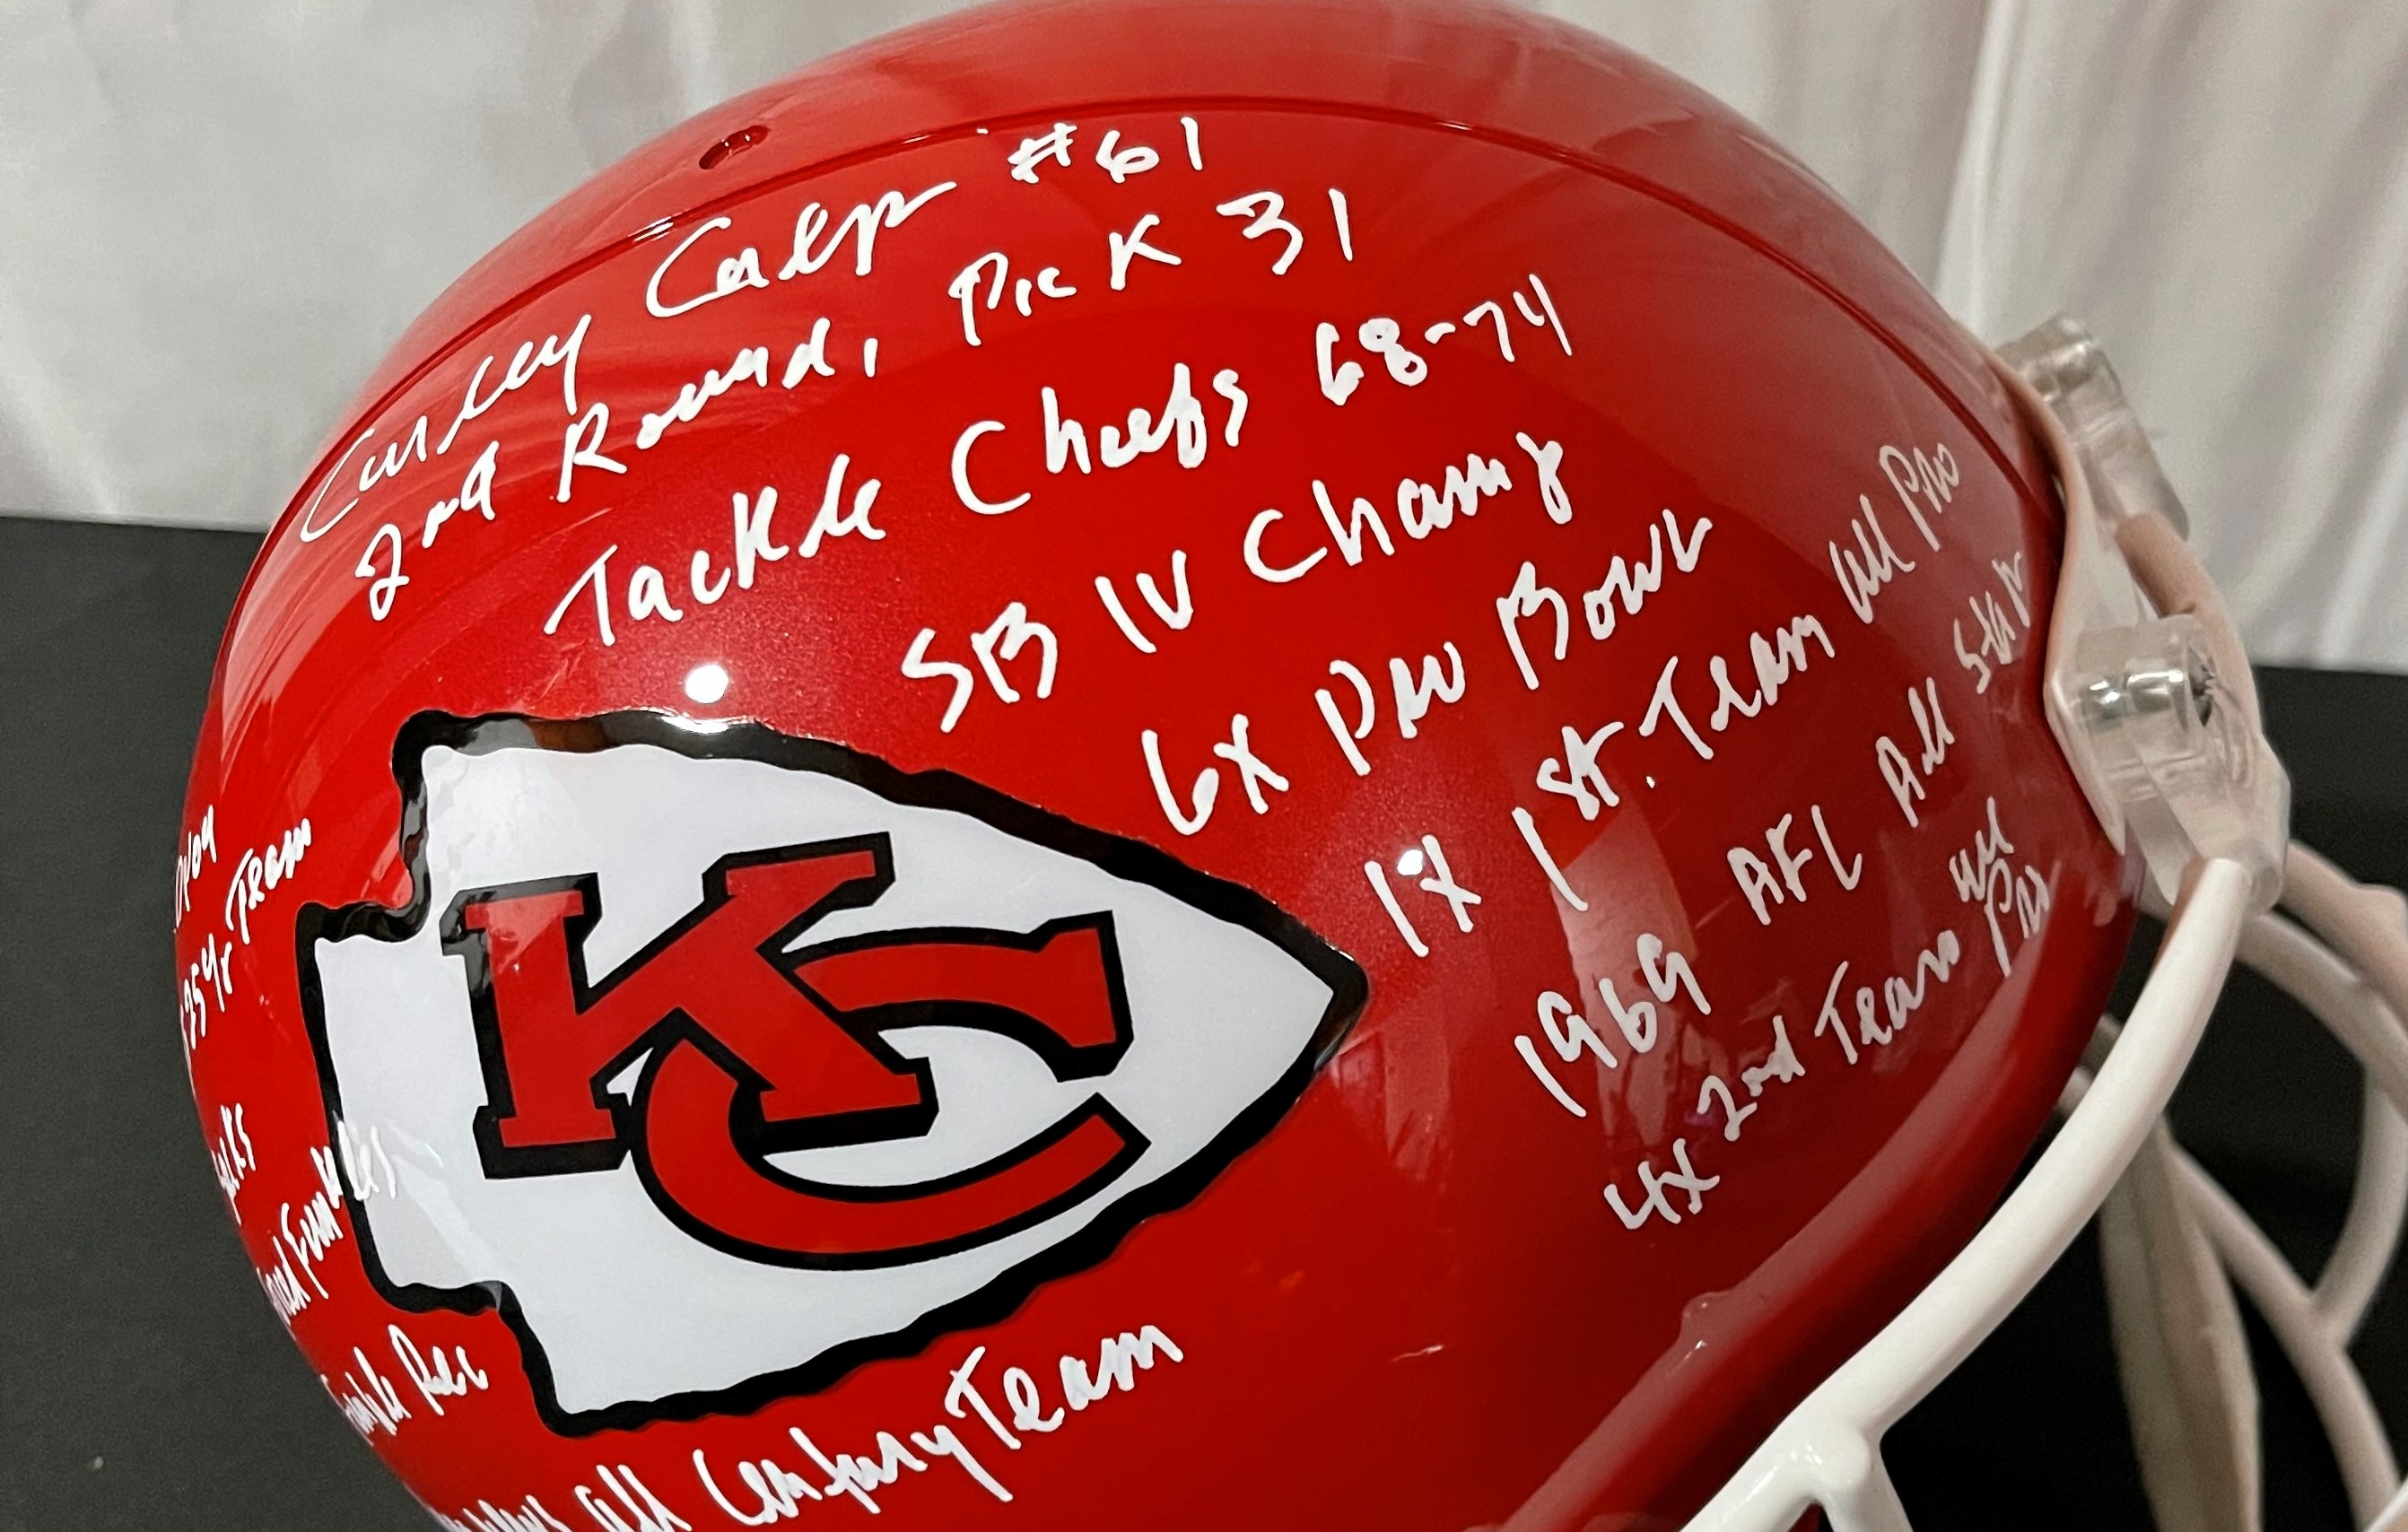 Curley Culp #61
2nd Round, Pick 31
Tackle Chiefs 68-74
SB IV Champ
6X Pro Bowl
1X 1st. Team All Pro
1969 AFL All Star
4X 2nd Team All Pro
25 Yr Team
KC
Fumbles
Fumble Rec
All Century Team